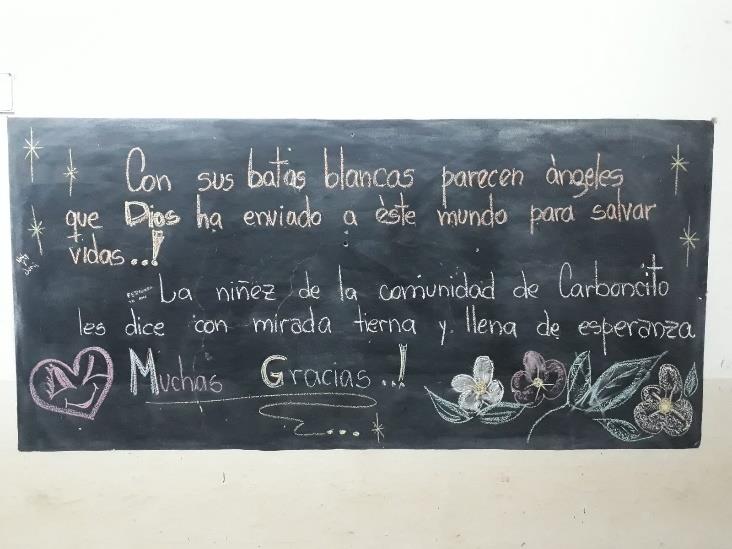 Con sus batas blancas parecen àngeles
que Dios ha enviado a èste mundo para salvar
vidas...!
La niñez de la comunidad de Carboncito
les dice con mirada tierna y llena de esperanza
Muchas Gracias...!